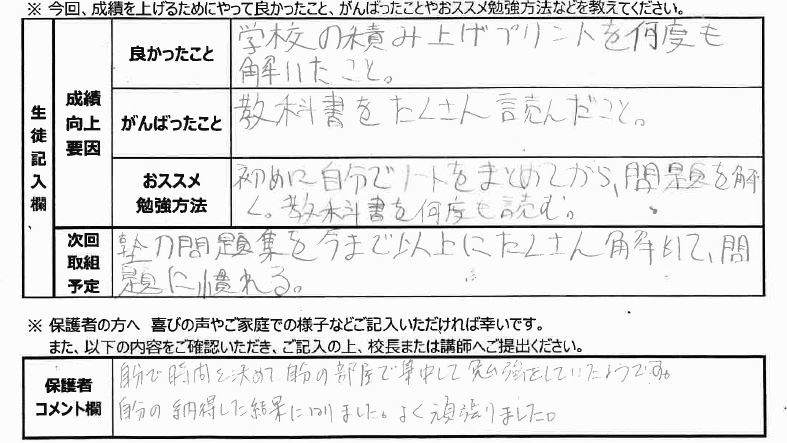 ※ 今回、成績を上げるためにやって良かったこと、がんばったことやおススメ勉強方法などを教えてください。
生徒記入欄
成績向上要因
良かったこと
学校の積み上げプリントを何度も
解いたこと。
がんばったこと
教科書をたくさん読んだこと。
おススメ
勉強方法
初めに自分でノートをまとめてから、問題を解
く。教科書を何度も読む。
次回
取組
予定
塾の問題集を今まで以上にたくさん解いて、問
題に慣れる。
※ 保護者の方へ 喜びの声やご家庭での様子などご記入いただければ幸いです。
また、以下の内容をご確認いただき、ご記入の上、校長または講師へご提出ください。
保護者
コメント欄
自分で時間を決めて自分の部屋で集中して勉強をしていたようです。
自分の納得した結果になりました。よく頑張りました。